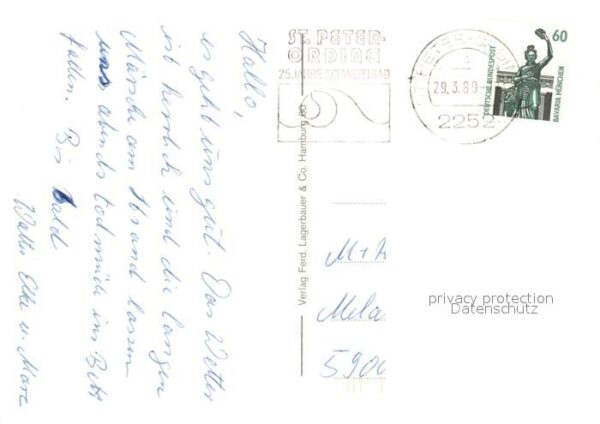 Hallo,
es geht uns gut. Das Wetter
ist herrlich und die langen
Märsche am Strand lassen
uns abends todmüde ins Bett
fallen. Bis Bald
Walter Elke u. Marc
ST. PETER-
ORDING
25 JAHRE SCHWEFELBAD
29.3.89
2252
60
DEUTSCHE BUNDESPOST
BAVARIA MÜNCHEN
Verlag Ferd. Lagerbauer & Co. Hamburg 80
M + 
Mela
5900
privacy protection
Datenschutz